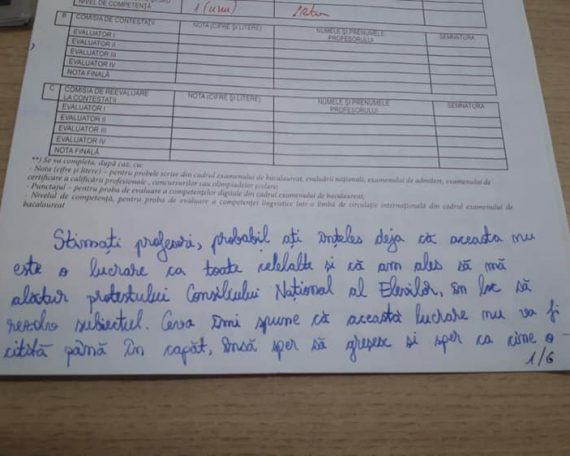 NIVEL DE COMPETENȚĂ 1 (unu)
B COMISIA DE CONTESTAȚII NOTA (CIFRE ȘI LITERE) NUMELE ȘI PRENUMELE PROFESORULUI SEMNATURA
EVALUATOR I
EVALUATOR II
EVALUATOR III
EVALUATOR IV
NOTA FINALĂ
C COMISIA DE REEVALUARE LA CONTESTAȚII NOTA (CIFRE ȘI LITERE) NUMELE ȘI PRENUMELE PROFESORULUI SEMNATURA
EVALUATOR I
EVALUATOR II
EVALUATOR III
EVALUATOR IV
NOTA FINALĂ
**) Se va completa, după caz, cu:
- Nota (cifre și litere) – pentru probele scrise din cadrul examenului de bacalaureat, evaluării naționale, examenului de admitere, examenului de
certificare a calificării profesionale, concursurilor sau olimpiadelor școlare;
- Punctajul – pentru proba de evaluare a competențelor digitale din cadrul examenului de bacalaureat;
- Nivelul de competență, pentru proba de evaluare a competenței lingvistice într-o limbă de circulație internațională din cadrul examenului de
bacalaureat
Stimați profesori, probabil ați înțeles deja că aceasta nu
este o lucrare ca toate celelalte și că am ales să mă
alătur protestului Consiliului Național al Elevilor, în loc să
rezolv subiectul. Ceva îmi spune că această lucrare nu va fi
citită până în capăt, însă sper să greșesc și sper ca cine o
1/6